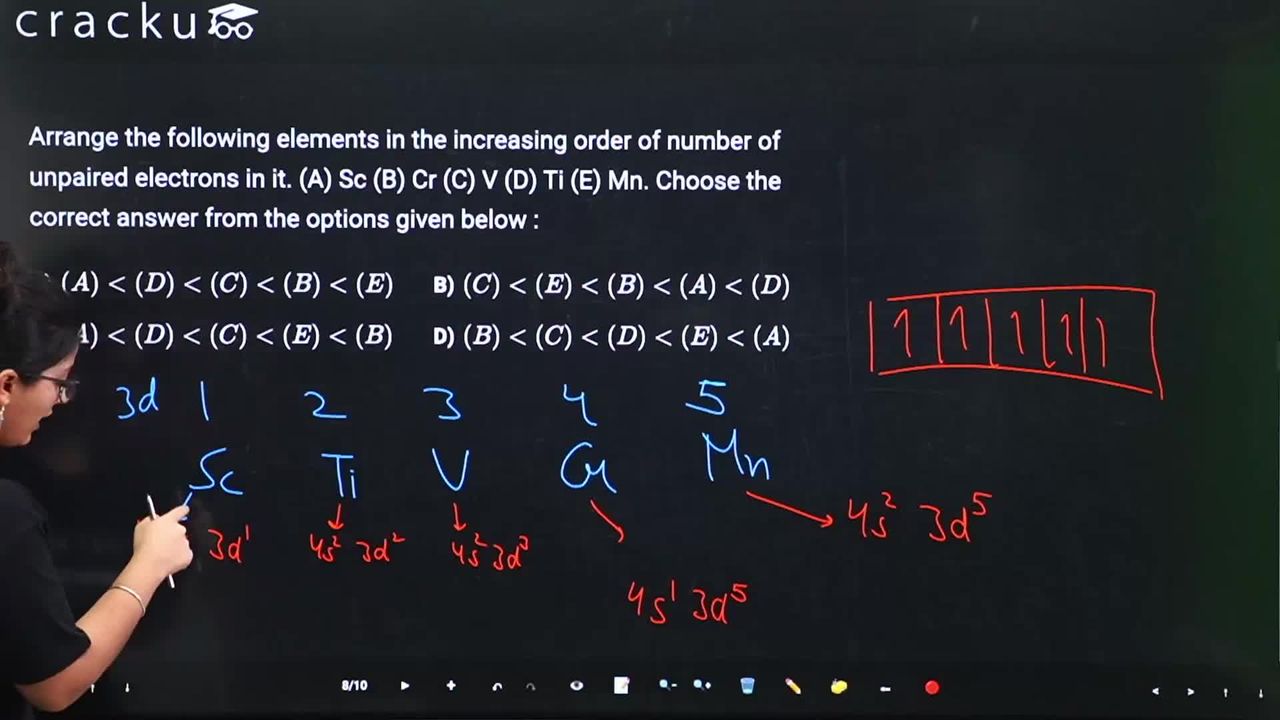 cracku
Arrange the following elements in the increasing order of number of
unpaired electrons in it. (A) Sc (B) Cr (C) V (D) Ti (E) Mn. Choose the
correct answer from the options given below :
(A) < (D) < (C) < (B) < (E) B) (C) < (E) < (B) < (A) < (D)
A) < (D) < (C) < (E) < (B) D) (B) < (C) < (D) < (E) < (A)
1 1 1 1 1
3d 1 2 3 4 5
Sc Ti V Cr Mn
3d¹ 4s² 3d² 4s² 3d³ 4s² 3d⁵
4s¹ 3d⁵
8/10